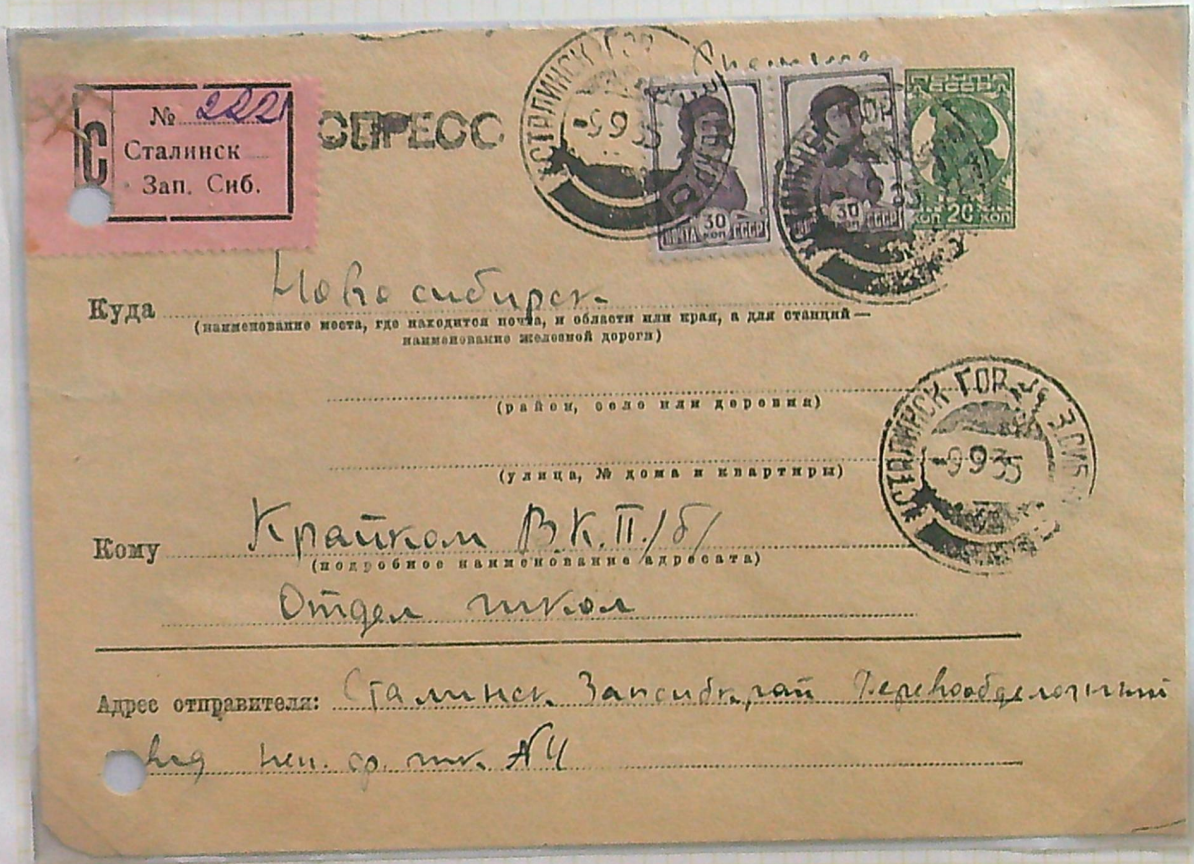 № 2221
С
Сталинск
Зап. Сиб.
ЭКСПРЕСС
СТАЛИНСК ГОР
-9935
30
ПОЧТА КОП СССР
30
КОП СССР
ПОЧТА
СССР
КОП 20 КОП
Куда Новосибирск
(наименование места, где находится почта, и области или края, а для станций—
наименование железной дороги)
(район, село или деревня)
СТАЛИНСК ГОР №1 З.СИБ
-9935
(улица, № дома и квартиры)
Кому Крайком В.К.П./б/
(подробное наименование адресата)
Отдел школ
Адрес отправителя: Сталинск Запсибкрай Деревообделочный
неп. ср. шк.